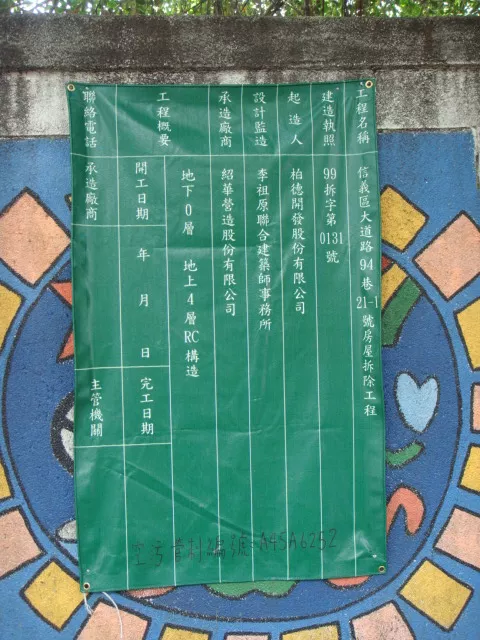 工程名稱 信義區大道路94巷21-1號房屋拆除工程
建造執照 99拆字第0131號
起造人 柏德開發股份有限公司
設計監造 李祖原聯合建築師事務所
承造廠商 紹華營造股份有限公司
工程概要 地下0層 地上4層RC構造
開工日期 年 月 日 完工日期
聯絡電話 承造廠商 主管機關
空污管制編號:A45A6252